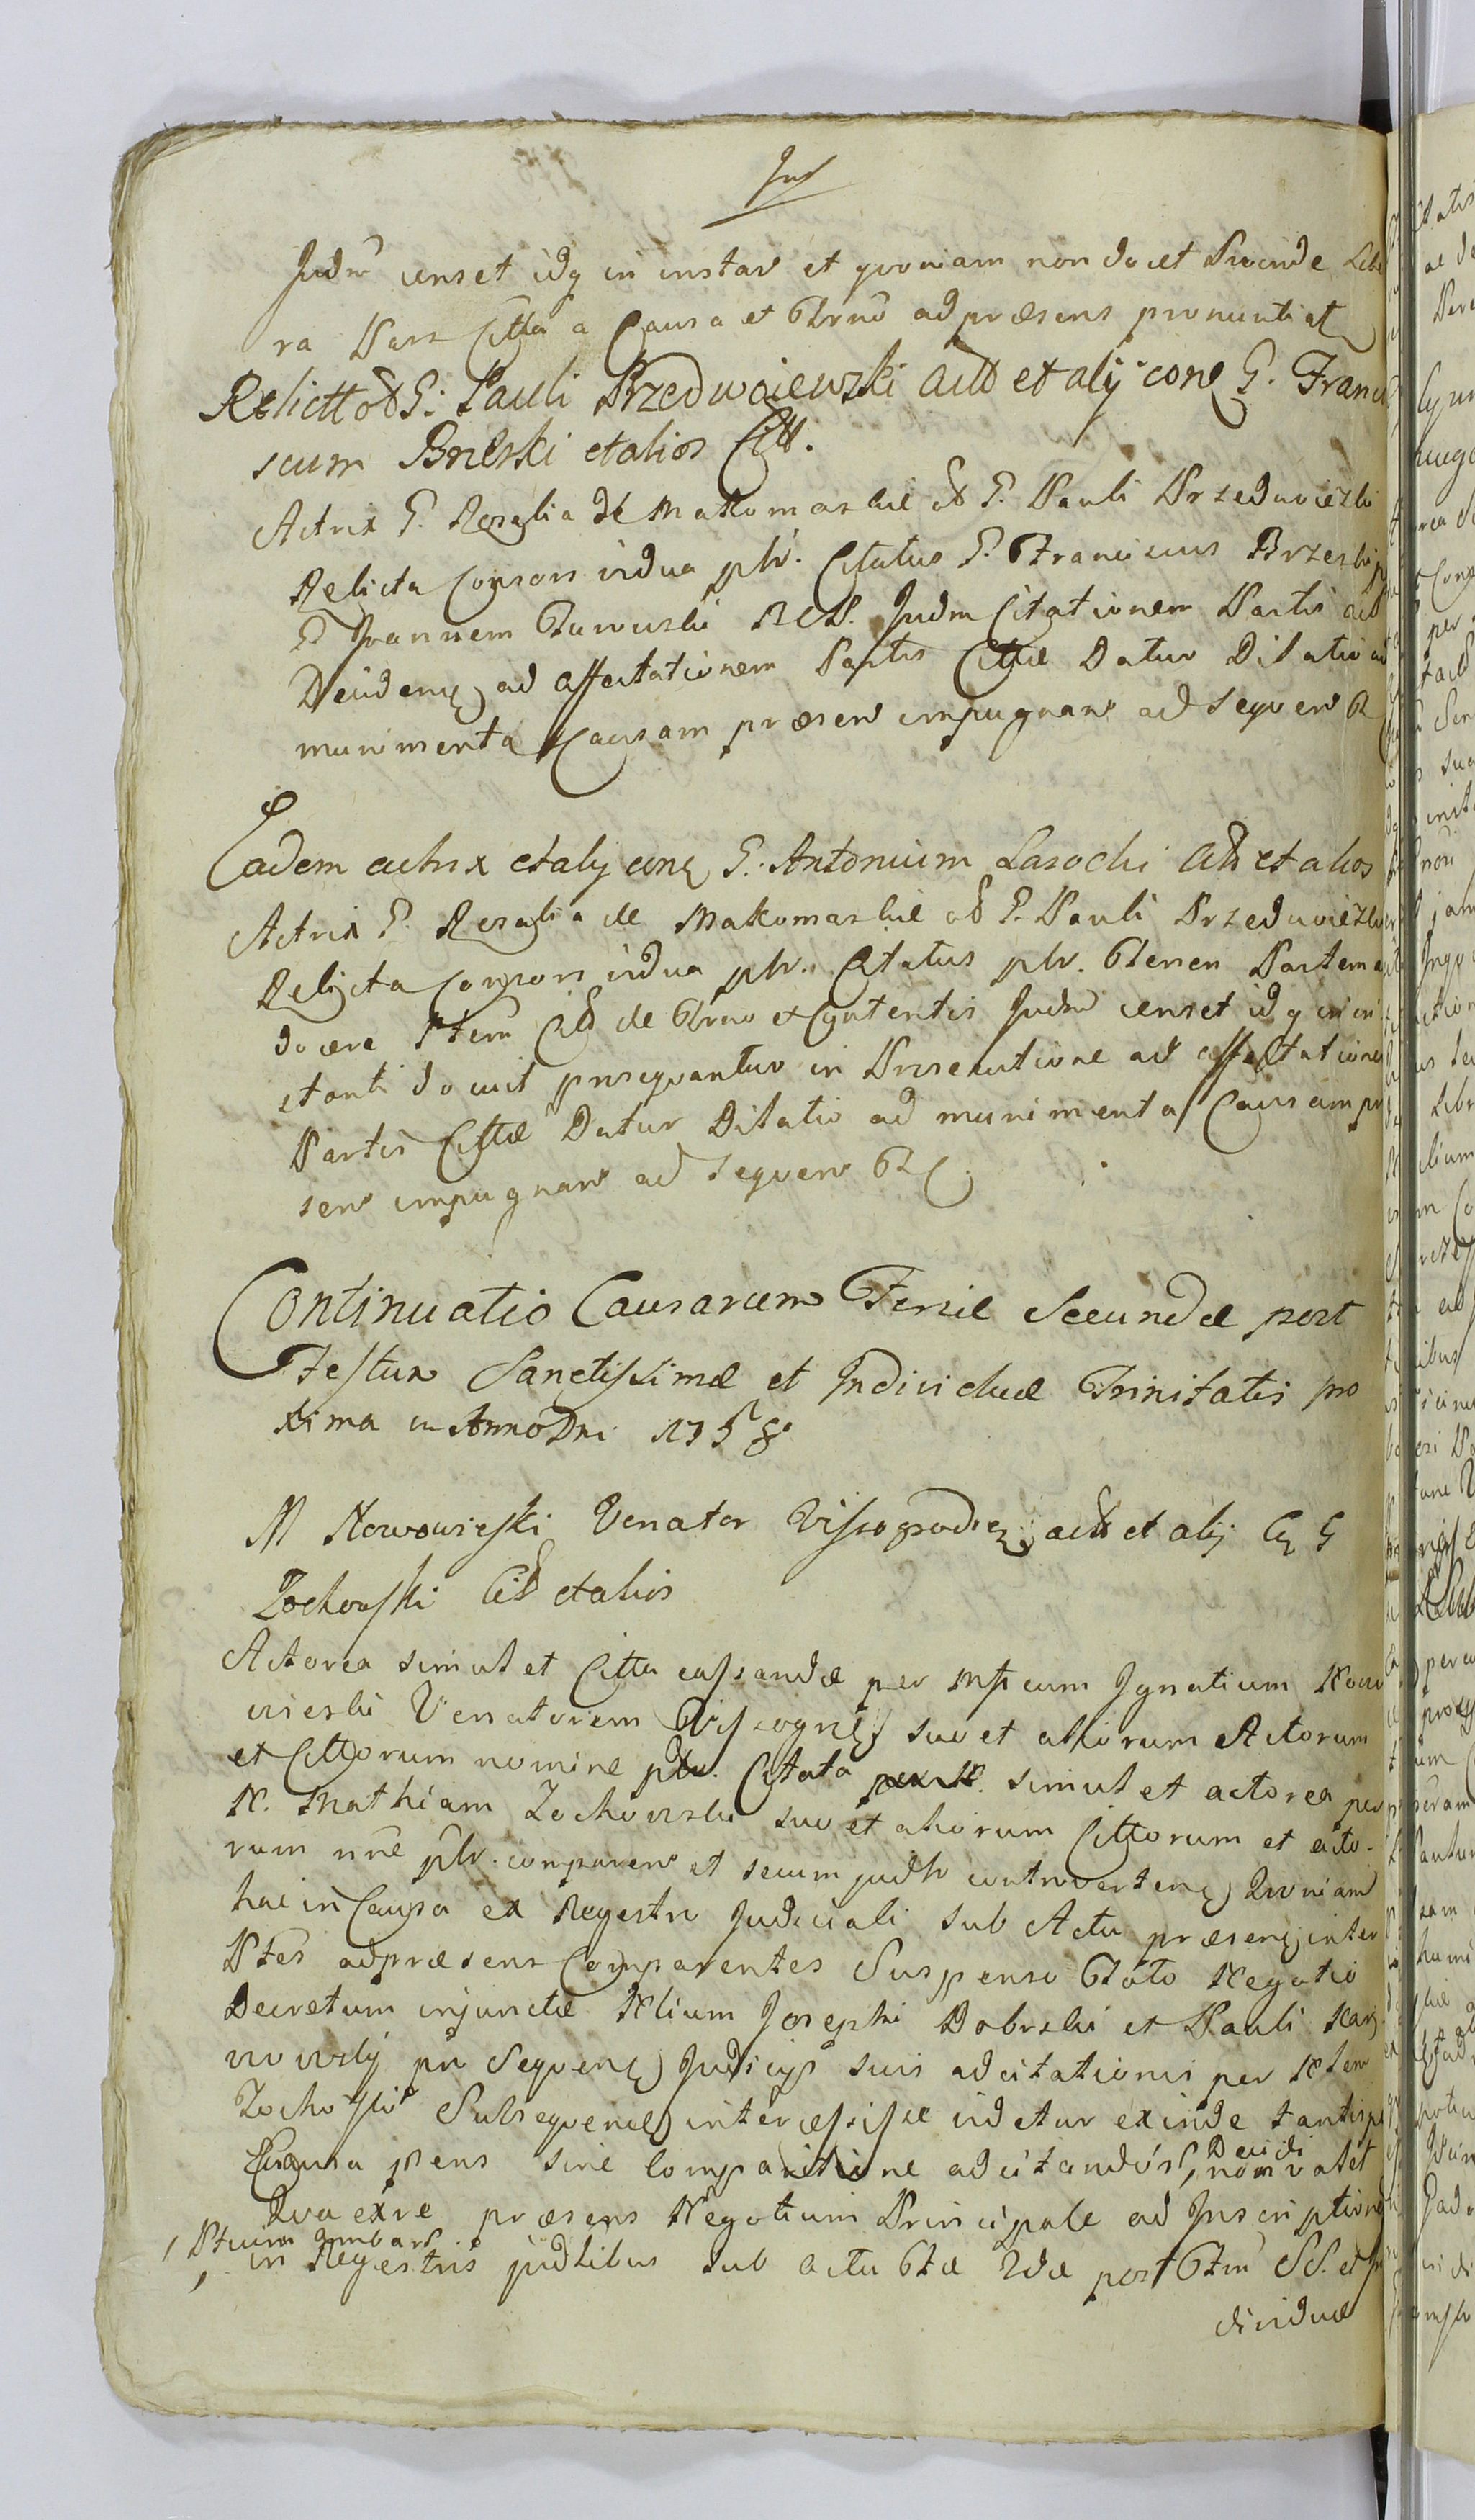 Jud
Judm censet idq in instan et quoniam non docet Proinde Libe
ra Pars Citta a Causa et Trno ad præsens pronuntiat
Relictt oł G: Pauli Przedwoiewski Actt et alij conq G. Franci
scum Brzeski et alios Citt.
Actrix G. Rosalia de Makomaskie oł G. Pauli Przedwoieski
Relicta Consors vidua pltr. Citatus G. Franciscus Brzeski p
G Joannem RCP. Judm Citationem Partis act
Deciden ad affectationem Partis Cittæ Datur Dilatio ad
munimenta Causam præsen impugnan ad sequen T
Eadem actrix et alij conq G. Antonium Lasocki Citt et alios
Actrix G. Rosalia de Makomaskie oł G. Pauli Przedwoieski
Relicta Consors vidua pltr. Citatus pltr. Teneri Partem a
docere Ptem Citt de Trno et Contentis Judm censet idq in in
stanti docuit prosequantur in Prosecutione ad affectationem
Partis Cittæ Datur Dilatio ad munimenta Causam pr
sen impugnan ad sequen T C
Continuatio Causarum Feriæ Secundæ post
Festum Sanctissimæ et Individuæ Trinitatis pro
xima in Anno Dni 1758
M Nowowieski Venator Vissogrodien actt et alij Cq G
Zochowski Citt et alios
Actorea simul et Citta cassandæ per Mfcum Ignatium Nowo
wieski Venatorem Wissogne suo et aliorum Actorum
et Cittorum nomine pltr. Citata simul et actorea per
N. Mathiam Zochowski suo et aliorum Cittorum et acto-
rum nne pltr. comparen et secum judlr controverten Quoniam
hac in Causa ex Regestro Judiciali sub Actu præsen inter
Ptes ad præsens Comparentes Suspenso Toto Negotio
Decretum injunctæ Nlium Josephi Dobrski et Pauli Nar
wowskij pro Sequen Judicijs suis adcitationis per Nlem
Zochowski Subsequenda intercessisse videtur exinde tantisp
Causa pens sine Comparitione adcitandos, Decidi non valet
Qua ex re præsens Negotium Principale ad Inscriptione
in Regestris judlibus sub actu Fæ 2dæ post Ftm SS. et In
dividuæ